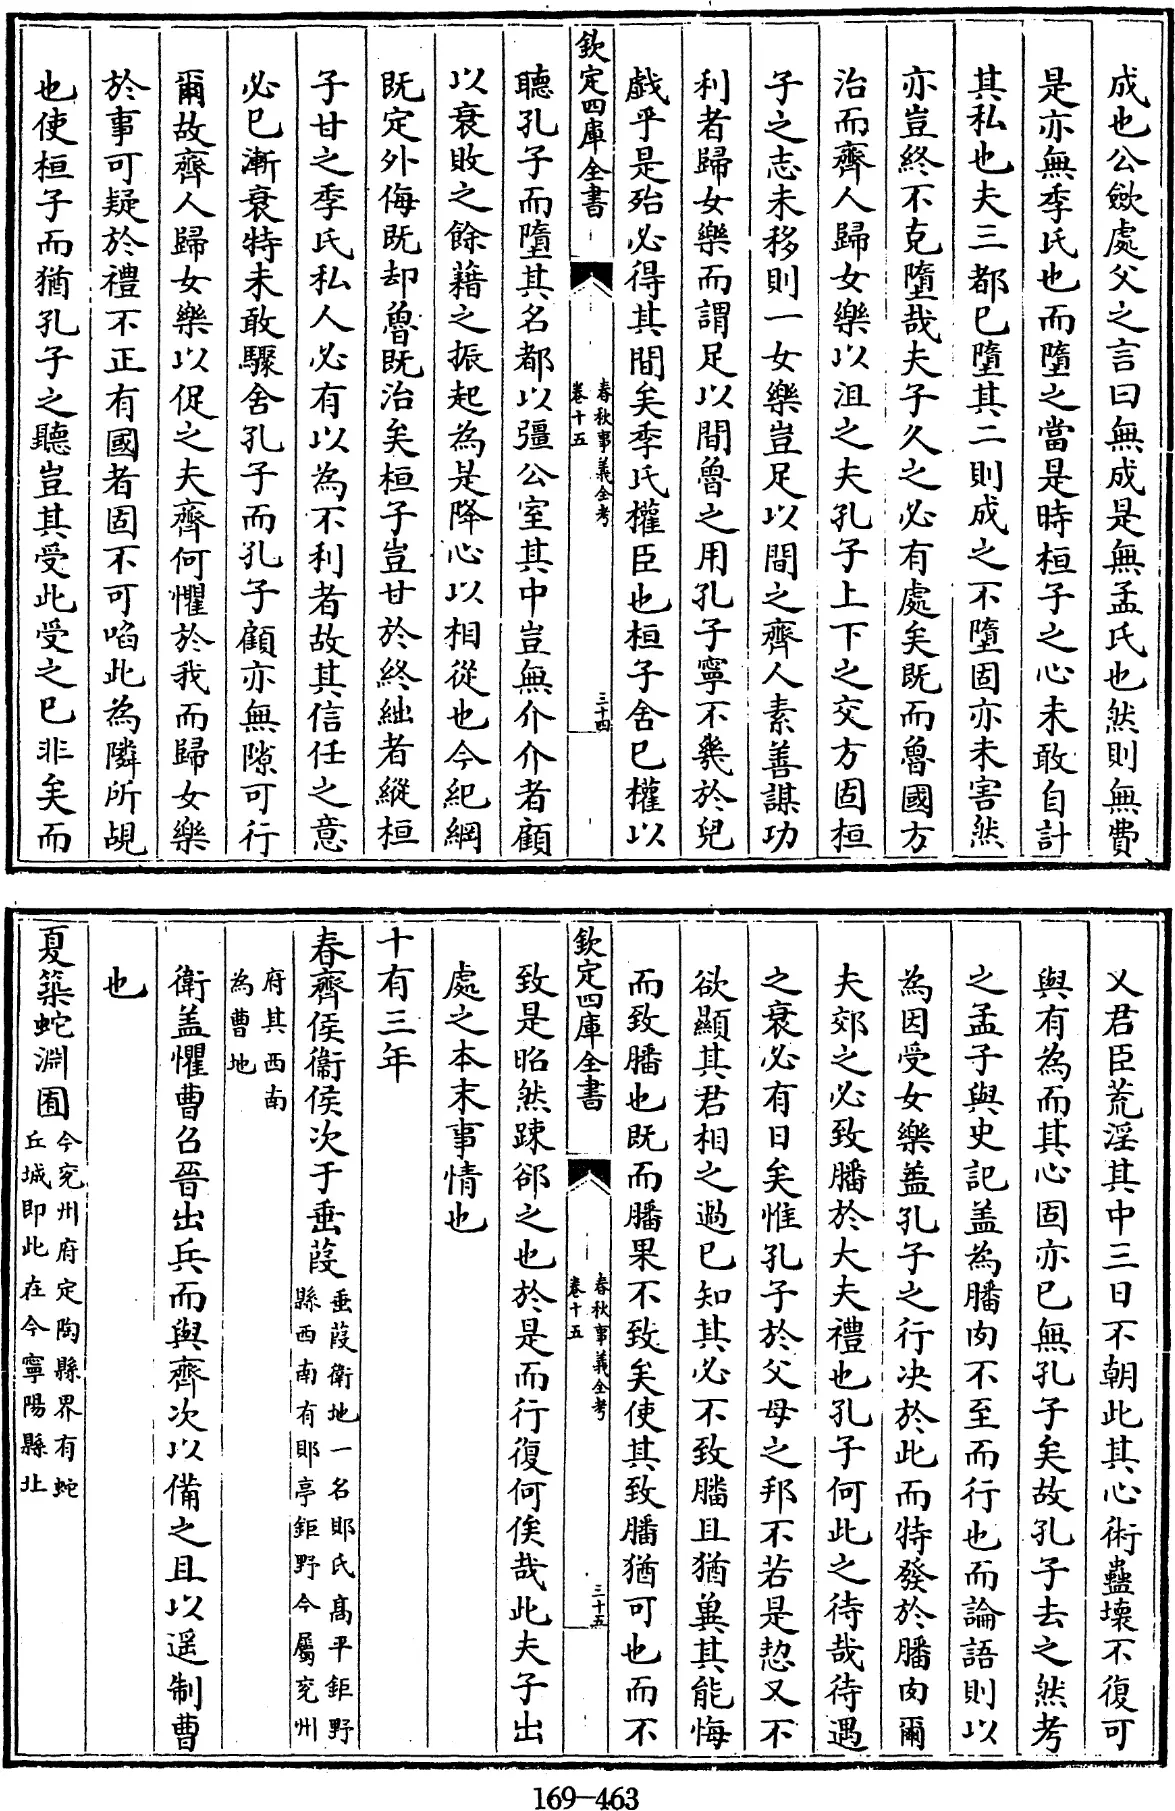 成也公斂處父之言曰無成是無孟氏也然則無費
是亦無季氏也而墮之當是時桓子之心未敢自計
其私也夫三都已墮其二則成之不墮固亦未害然
亦豈終不克墮哉夫子久之必有處矣既而魯國方
治而齊人歸女樂以沮之夫孔子上下之交方固桓
子之志未移則一女樂豈足以間之齊人素善謀功
利者歸女樂而謂足以間魯之用孔子寧不幾於兒
戲乎是殆必得其間矣季氏權臣也桓子舍已權以
欽定四庫全書
春秋事義全考
卷十五
三十四
聽孔子而墮其名都以彊公室其中豈無介介者顧
以衰敗之餘藉之振起為是降心以相從也今紀綱
既定外侮既却魯既治矣桓子豈甘於終絀者縱桓
子甘之季氏私人必有以為不利者故其信任之意
必已漸衰特未敢驟舍孔子而孔子顧亦無隙可行
爾故齊人歸女樂以促之夫齊何懼於我而歸女樂
於事可疑於禮不正有國者固不可啗此為隣所覘
也使桓子而猶孔子之聽豈其受此受之已非矣而
又君臣荒淫其中三日不朝此其心術蠱壞不復可
與有為而其心固亦已無孔子矣故孔子去之然考
之孟子與史記盖為膰肉不至而行也而論語則以
為因受女樂盖孔子之行决於此而特發於膰肉爾
夫郊之必致膰於大夫禮也孔子何此之待哉待遇
之衰必有日矣惟孔子於父母之邦不若是恝又不
欲顯其君相之過已知其必不致膰且猶冀其能悔
而致膰也既而膰果不致矣使其致膰猶可也而不
欽定四庫全書
春秋事義全考
卷十五
三十五
致是昭然踈郤之也於是而行復何俟哉此夫子出
處之本末事情也
十有三年
春齊侯衞侯次于垂葭垂葭衛地一名郹氏高平鉅野
縣西南有郹亭鉅野今屬兖州
府其西南
為曹地
衛盖懼曹召晉出兵而與齊次以備之且以遥制曹
也
夏築蛇淵囿今兖州府定陶縣界有蛇
丘城即此在今寧陽縣北
169-463